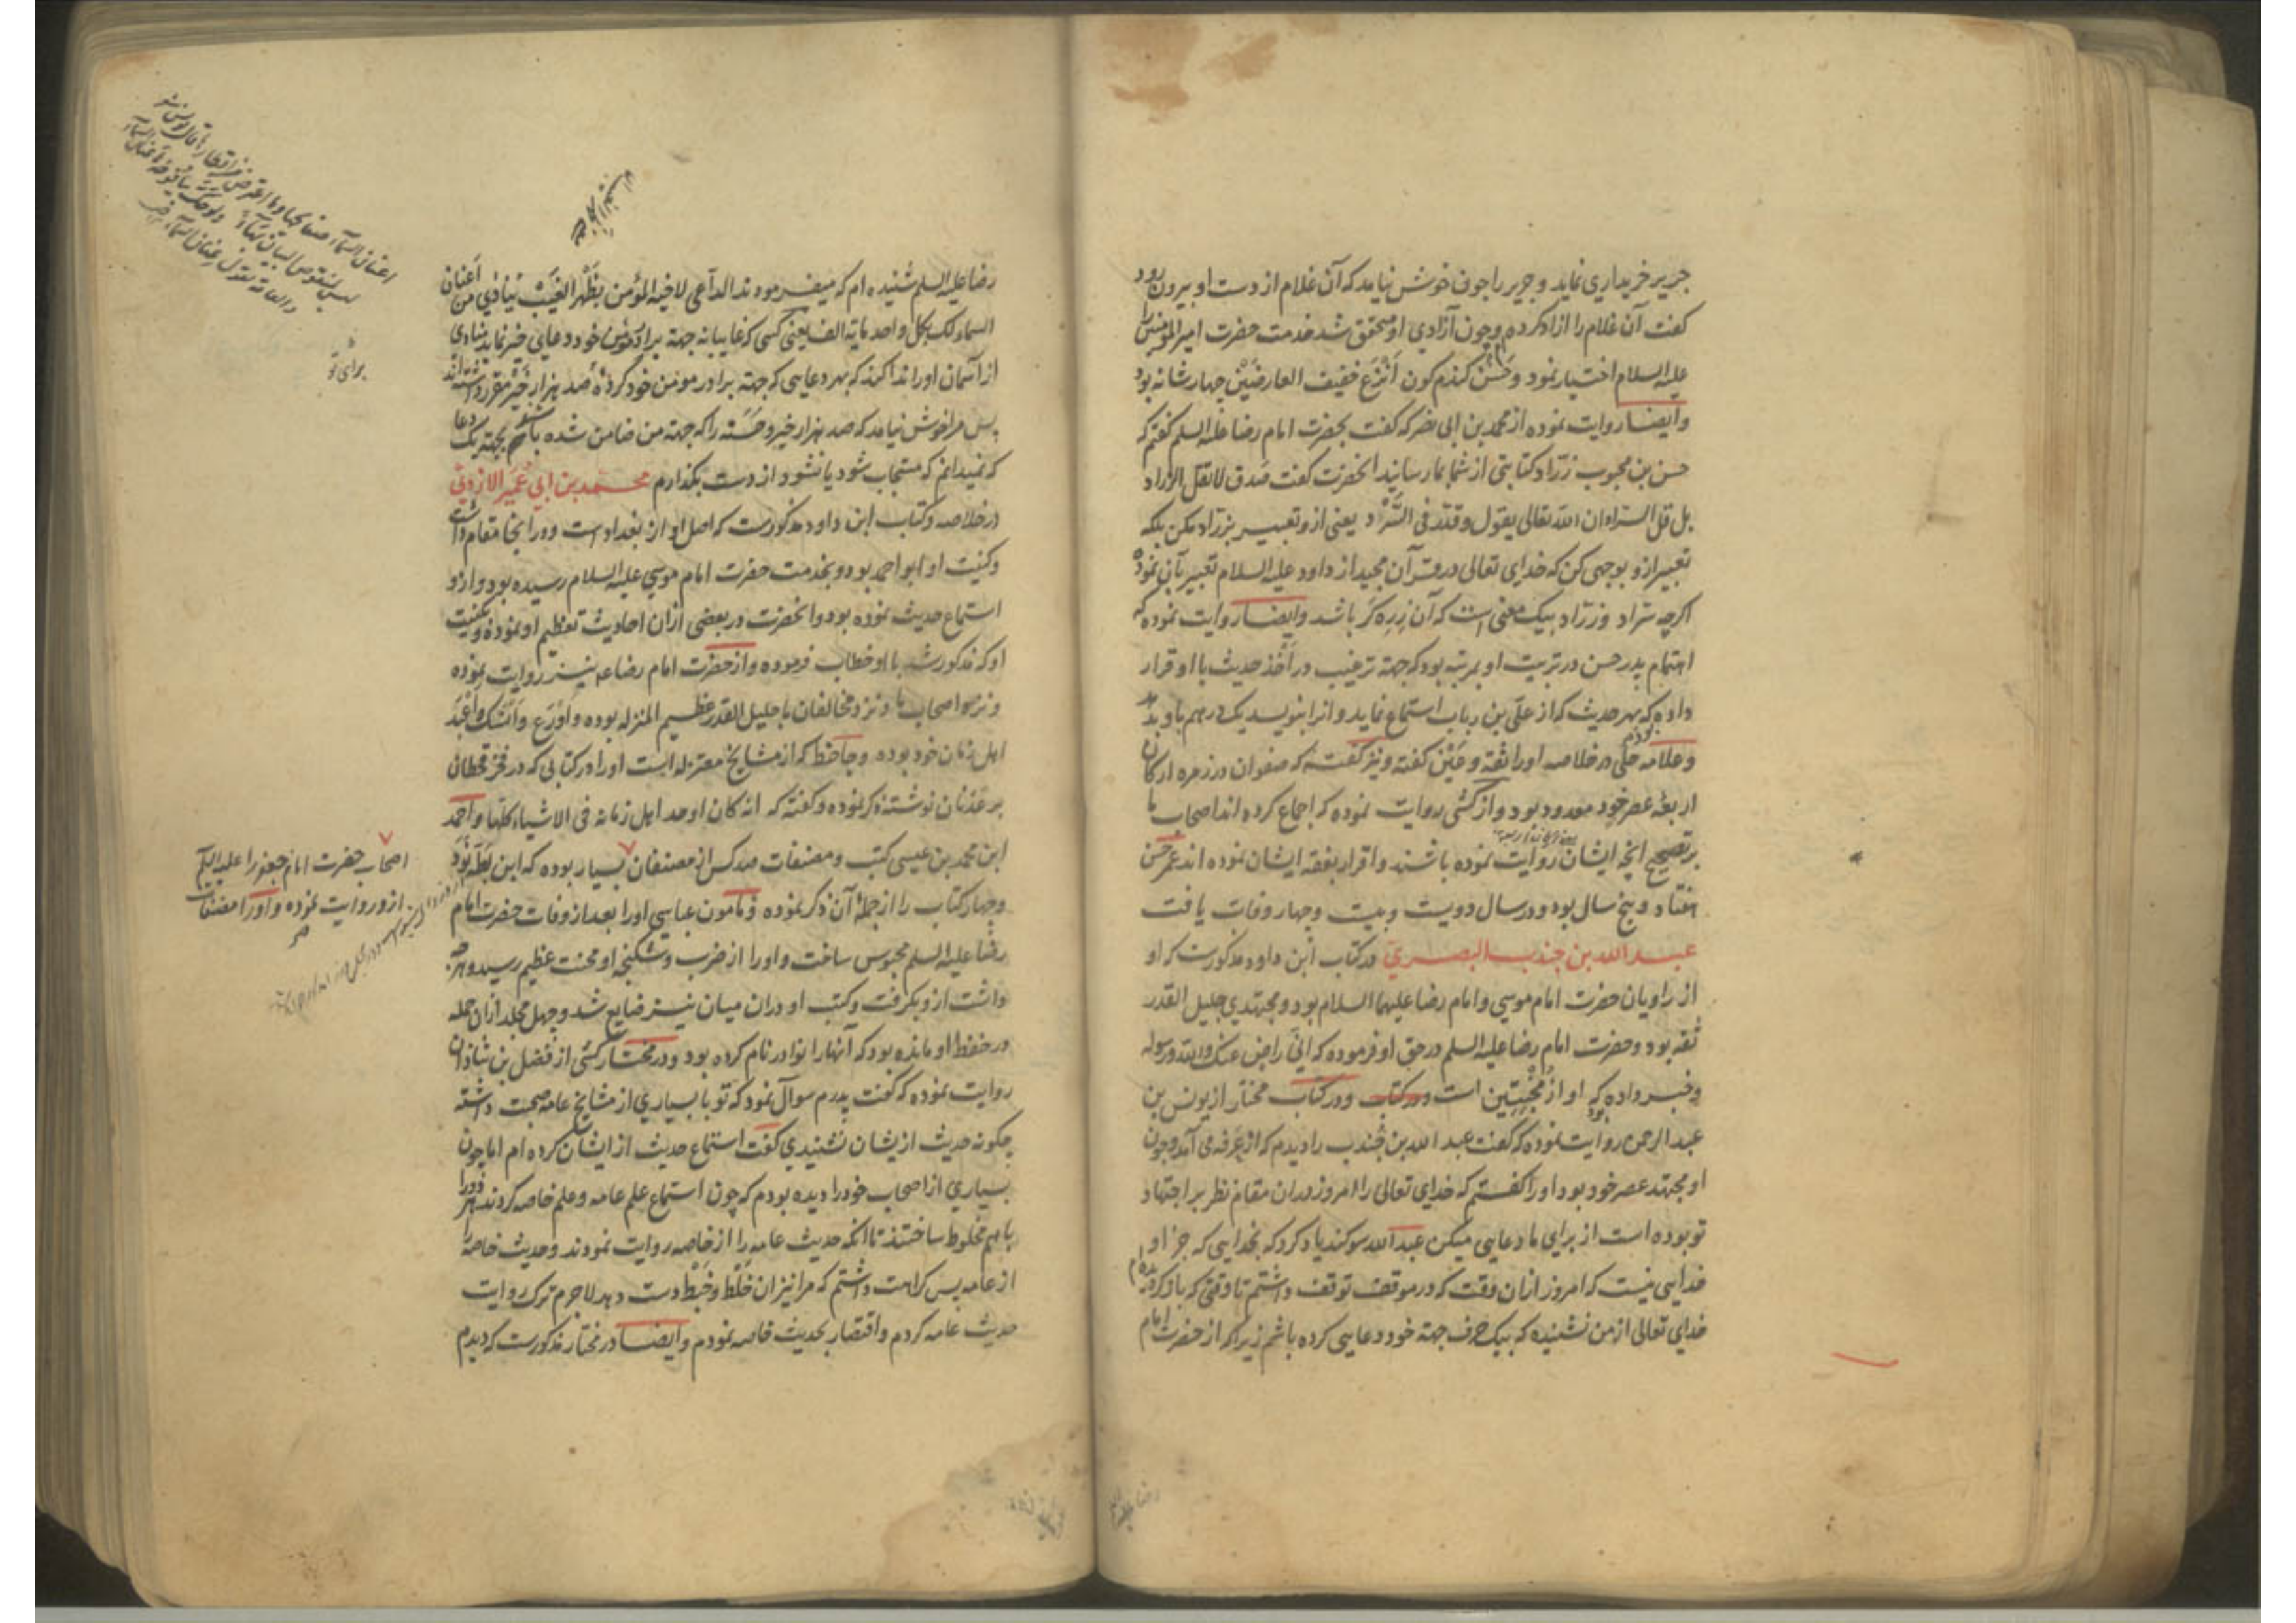 جریر خریداری نماید و جریر را چون خوش نیامد که آن غلام از دست او بیرون رود
گفت آن غلام را آزاد کرده‌ام و چون آزادی او محقق شد خدمت حضرت امیر المؤمنین را
علیه السلام اختیار نمود و حسن گندم گون أنزع خفیف العارضین چهار شانه بود
وایضا روایت نموده از محمد بن ابی نصر که گفت بحضرت امام رضا علیه السلم گفتم که
حسن بن محبوب زرّاد کتابتی از شما بما رسانید انحضرت گفت صَدق لا تقل الزراد
بل قل السراد ان الله تعالی یقول و قدّر فی السَّرْد یعنی ازو تعبیر بزرّاد مکن بلکه
تعبیر ازو بوجهی کن که خدای تعالی در قرآن مجید از داود علیه السلام تعبیر بآن نموده
اگرچه سرّاد و زرّاد بیک معنی است که آن زره گر باشد وایضا روایت نموده که
اهتمام پدر حسن در تربیت او بمرتبه بود که جهة ترغیب در أخذ حدیث با او قرار
داده بود که بهر حدیث که از علی بن رباب استماع نماید و انرا بنویسد یک درهم باو بدهد
و علامه حلی در خلاصه او را ثقة و عَیْن گفته و نیز گفته که صفوان در زمره ارکان
اربعه عصر خود معدود بود و از کشی روایت نموده که اجماع کرده اند اصحاب ما
بر تصحیح انچه ایشان روایت نموده باشند و اقرار بفقه ایشان نموده اند عمر حسن
هفتاد و پنج سال بود و در سال دویست و بیست و چهار وفات یافت
عبد الله بن جندب البصری در کتاب ابن داود مذکورست که او
از راویان حضرت امام موسی و امام رضا علیهما السلام بود و مجتهدی جلیل القدر
ثقه بود و حضرت امام رضا علیه السلم در حق او فرموده که انّی راض عنک والله و رسوله
و خبر داده که او از مُخْبِتین است و در کتاب و در کتاب مختار از یونس بن
عبد الرحمن روایت نموده که گفت عبد الله بن جُندب را دیدم که از عرفه می آمد و چون
او مجتهد عصر خود بود او را گفتم که خدای تعالی را امروز در ان مقام نظر بر اجتهاد
تو بوده است از برای ما دعایی میکن عبد الله سوگند یاد کرد که بخدایی که جز او
خدایی نیست که امروز ازان وقت که در موقف توقف داشتم تا وقتی که باز گردیده‌ام
خدای تعالی از من نشنیده که بیک حرف جهة خود دعایی کرده باشم زیرا که از حضرت امام
رضا علیه السلم شنیده ام که میفرمودند الداعی لاخیه المؤمن بظَهْر الغَیْب یُنادی من أعنان
السماء لک بکل واحد مایة الف یعنی کسی که غایبانه جهة برادر مؤمن خود دعایی خیر نماید منادی
از آسمان او را ندا کند که بهر دعایی که جهة برادر مومن خود کرده صد هزار خیر مقرر داشته اند
پس مرا خوش نیامد که صد هزار خیر و حَسَنه را که جهة من ضامن شده باشند بجهة یک دعا
که نمیدانم که مستجاب شود یا نشود از دست بگذارم محمد بن ابی عُمَیر الازدی
در خلاصه و کتاب ابن داود مذکورست که اصل او از بغداد است و در انجا مقام داشت
و کنیت او ابو احمد بود و بخدمت حضرت امام موسی علیه السلام رسیده بود و ازو
استماع حدیث نموده بود و انحضرت در بعضی ازان احادیث تعظیم او نموده و بکنیت
او که مذکور شد با او خطاب فرموده و از حضرت امام رضا ع نیز روایت نموده
و نزد اصحاب ما و نزد مخالفان ما جلیل القدر عظیم المنزله بوده و أورع و أنسک و أعبد
اهل زمان خود بوده و جاحظ که از مشایخ معتزله است او را در کتابی که در فخر قحطان
بر عدنان نوشته ذکر نموده و گفته که انه کان اوحد اهل زمانه فی الاشیاء کلّها و احمد
ابن محمد بن عیسی کتب و مصنفات صد کس از مصنفان بسیار بوده که ابن بطّه نود
و چهار کتاب را از جملهٔ آن ذکر نموده و مامون عباسی او را بعد از وفات حضرت امام
رضا علیه السلم محبوس ساخت و او را از ضرب و شکنجه او محنت عظیم رسید و هرچه
داشت ازو بگرفت و کتب او دران میان نیز ضایع شد و چهل مجلد ازان جمله
در حفظ او مانده بود که آنها را نوادر نام کرده بود و در مختار کشی از فضل بن شاذان
روایت نموده که گفت پدرم سوال نمود که تو با بسیاری از مشایخ عامه صحبت داشته
چگونه حدیث ازیشان نشنیدی گفت استماع حدیث از ایشان کرده ام اما چون
بسیاری از اصحاب خود را دیده بودم که چون استماع علم عامه و علم خاصه کردند هر دو را
با هم مخلوط ساختند تا انکه حدیث عامه را از خاصه روایت نمودند و حدیث خاصه را
از عامه پس کراهت داشتم که مرا نیز ان خَلْط و خَبْط دست دهد لاجرم ترک روایت
حدیث عامه کردم و اقتصار بحدیث خاصه نمودم وایضا در مختار مذکورست که دیدم
اعنان السماء صفایحها و ما اعترض من اقطارها قال یونس
لیس لمنقوص البیان بهاء و لو حک بیافوخه أعنان السماء
والعامة تقول عنان السماء
برای تو
اصحاب حضرت امام جعفر را علیه السلم
ازو روایت نموده و او را مصنفات